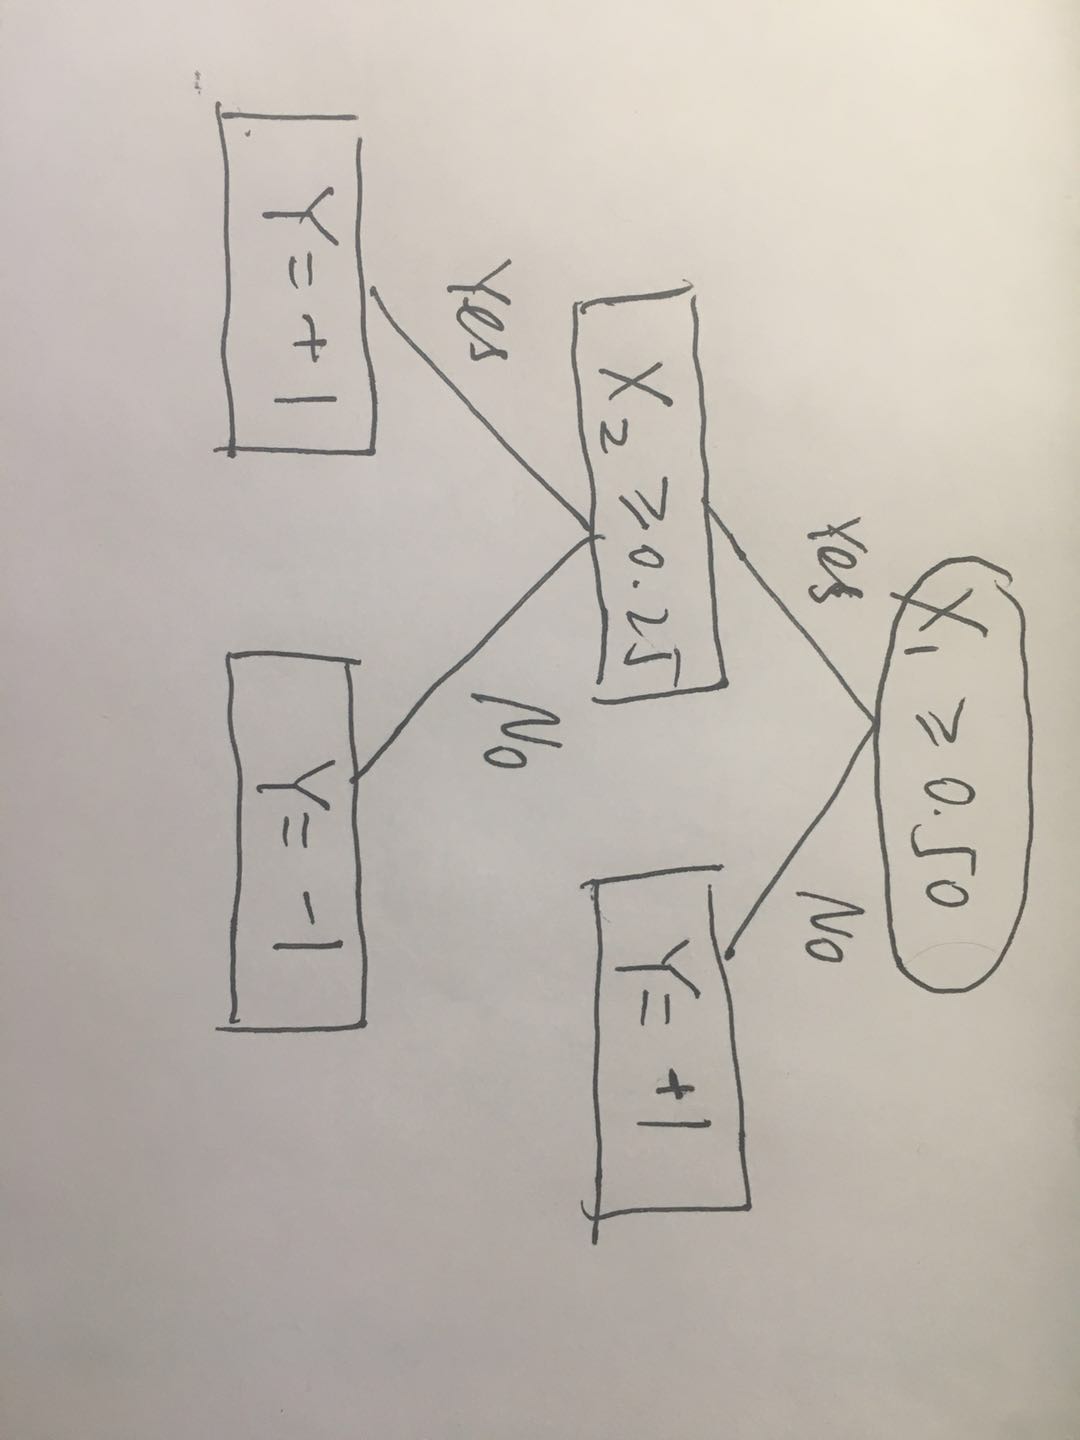 X₁ ⩾ 0.50
Yes
No
X₂ ⩾ 0.25
Y = +1
Yes
No
Y = +1
Y = -1